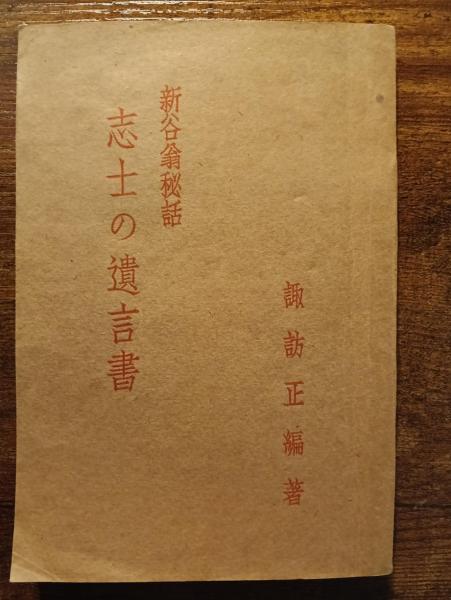 諏訪正編著
新谷翁秘話
志士の遺言書